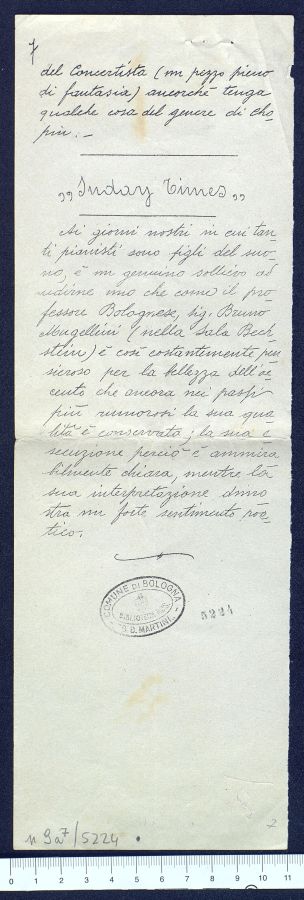 7
del Concertista (un pezzo pieno
di fantasia) ancorchè tenga
qualche cosa del genere di Cho=
pin. –
„ Sunday Times „
Ai giorni nostri in cui tan=
ti pianisti sono figli del suo=
no, è un genuino sollievo ad
udirne uno che come il pro=
fessore Bolognese, sig. Bruno
Mugellini (nella Sala Bech=
stein) è così costantemente pen
sieroso per la bellezza dell'ac
cento che ancora nei passi
più rumorosi la sua qua
lità è conservata; la sua e=
secuzione perciò è ammira
bilmente chiara, mentre la
sua interpretazione dimo
stra un forte sentimento poe=
tico.
COMUNE DI BOLOGNA
BIBLIOTECA MUS.
G. B. MARTINI
5224
n 9a7/5224
7
0 1 2 3 4 5 6 7 8 9 10 11